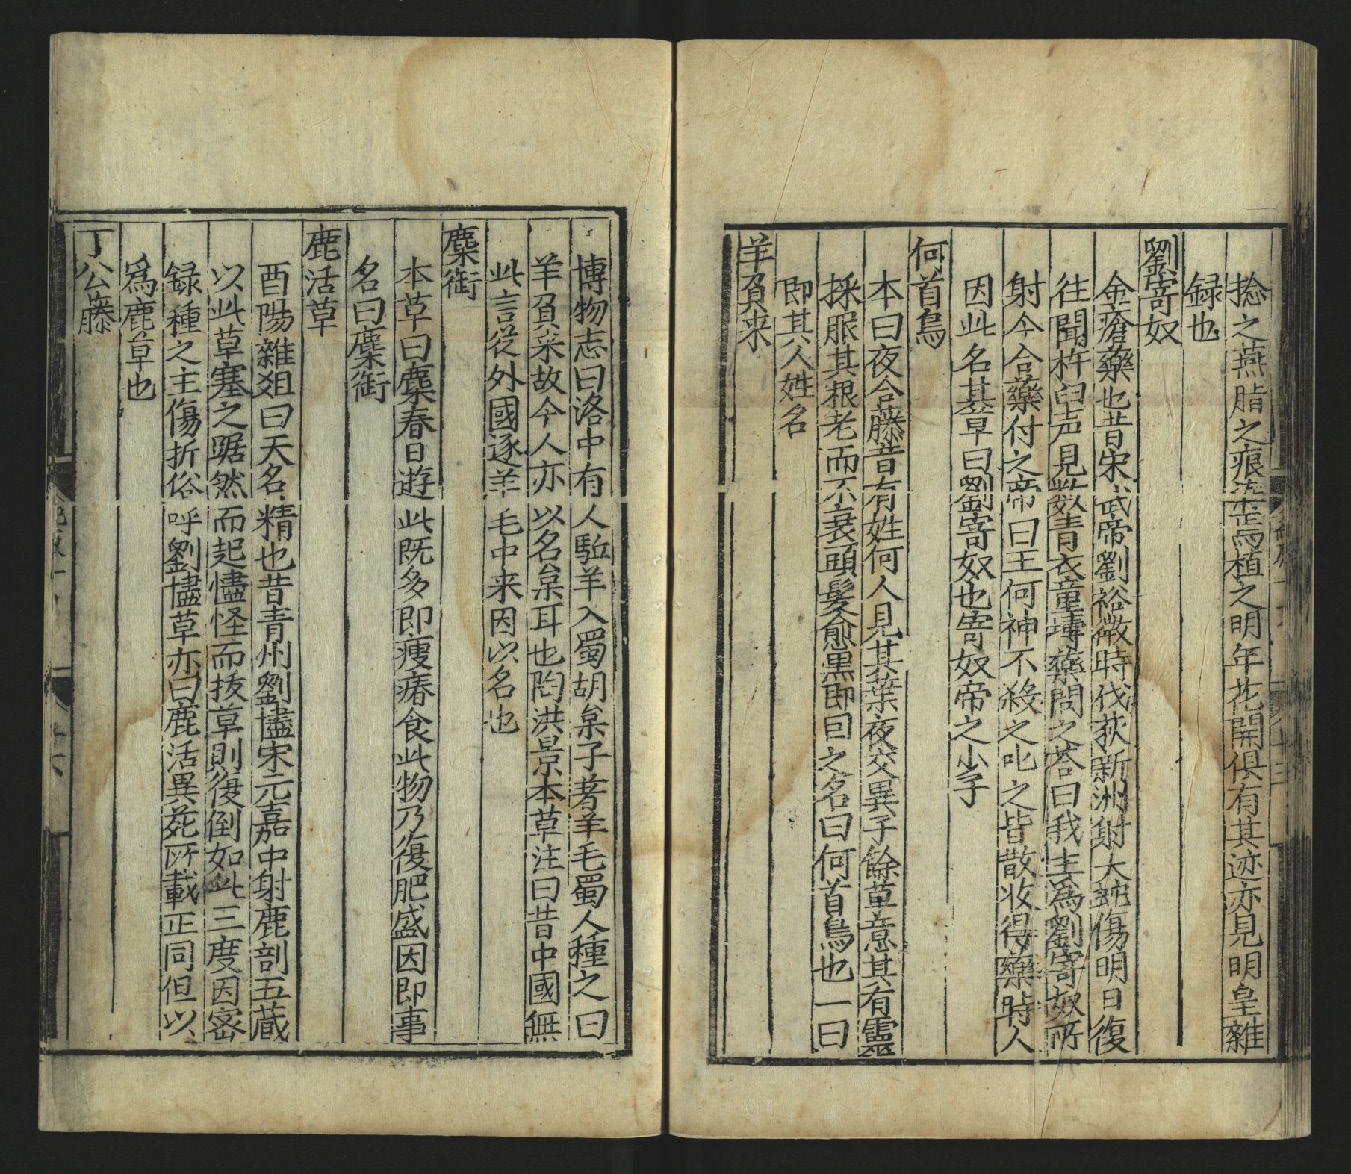 捻之燕脂之痕謹焉植之明年花開俱有其迹亦見明皇雜
録也
劉寄奴
金瘡藥也昔宋武帝劉裕微時伐荻新洲射大蛇傷明日復
往聞杵臼声見数青衣童擣藥問之荅曰我主爲劉寄奴所
射今合藥付之帝曰王何神不殺之叱之皆散收得藥時人
因此名其草曰劉寄奴也寄奴帝之小字
何首烏
本曰夜合藤昔有姓何人見其葉夜交異于餘草意其有靈
採服其根老而不衰頭髮愈黒即曰之名曰何首烏也一曰
即其人姓名
羊負来
博物志曰洛中有人駈羊入蜀胡枲子著羊毛蜀人種之曰
羊負来故今人亦以名枲耳也陶洪景本草注曰昔中國無
此言從外國逐羊毛中来因以名也
麋銜
本草曰麋春日遊此既多即瘦瘠食此物乃復肥盛因即事
名曰麋銜
鹿活草
酉陽雜俎曰天名精也昔青州劉㦃宋元嘉中射鹿剖五藏
以此草塞之蹶然而起㦃怪而拔草則復倒如此三度因密
録種之主傷折俗呼劉㦃草亦曰鹿活異苑所載正同但以
爲鹿草也
丁公藤